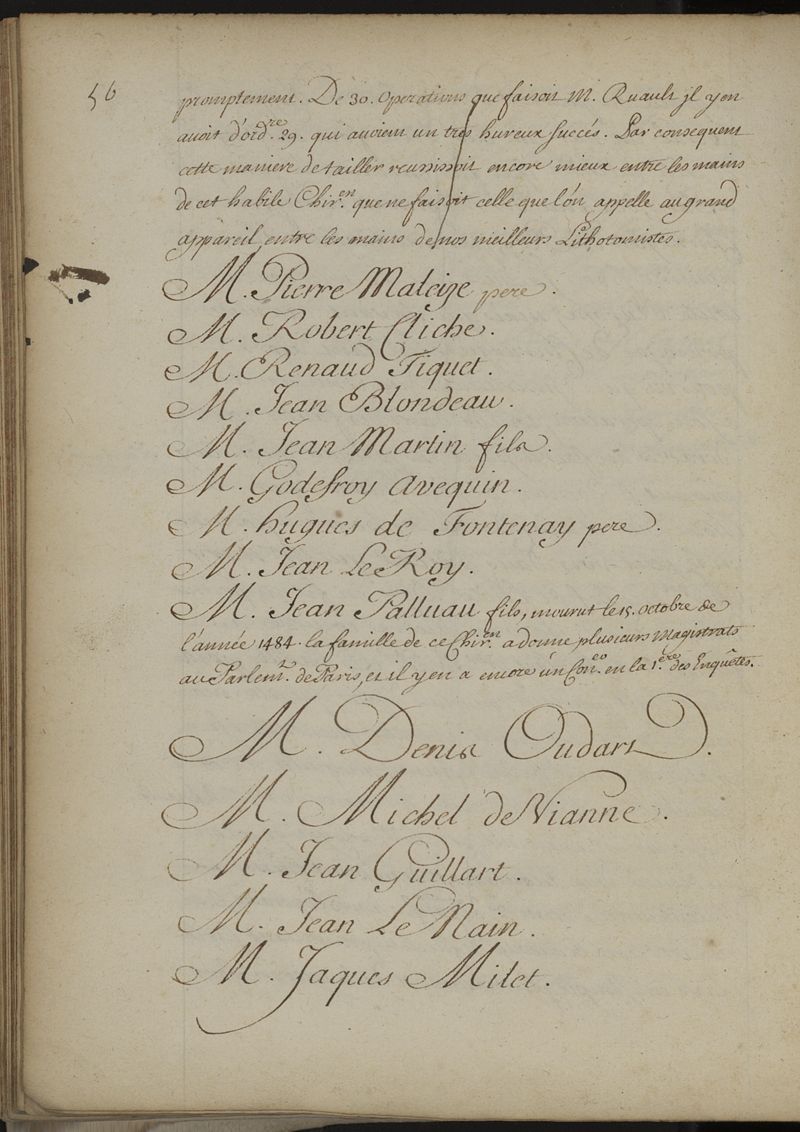 56
promptement. De 30. operations que faisoit M. Ruault jl y en
avoit d'ordre. 29. qui avoient un tres hureux succés. Par consequent
cette maniere de tailler reussissoit encore mieux entre les mains
de cet habile Chiren. que ne faisoit celle que l'on appelle au grand
appareil, entre les mains de nos meilleurs Lithotomistes.
M. Pierre Maleize pere.
M. Robert Cliche.
M. Renaud Fiquet.
M. Jean Blondeau.
M. Jean Martin fils.
M. Godefroy Avequin.
M. hugues de Fontenay pere.
M. Jean Le Roy.
M. Jean Palluau fils, mourut le 15. octobre de
l'année 1484. la famille de ce Chiren. a donne plusieurs Magistrats
au Parlemt. de Paris, et il y en a encore un Coner. en la 1.ere des Enquêtes.
M. Denis Oudart.
M. Michel de Vianne.
M. Jean Guillart.
M. Jean Le Nain.
M. Jaques Milet.